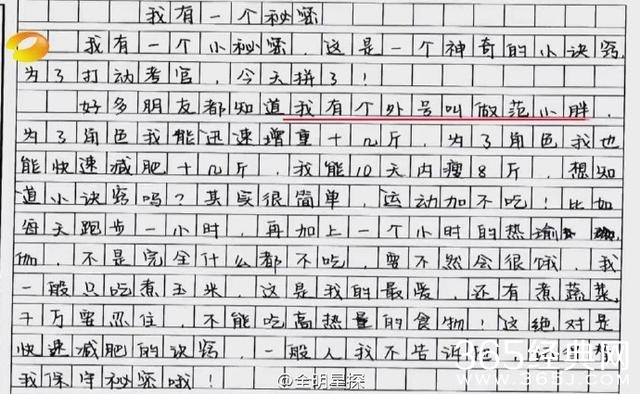 我有一个秘密
我有一个小秘密，这是一个神奇的小诀窍，
为了打动考官，今天拼了！
好多朋友都知道我有个外号叫做范小胖，
为了角色我能迅速增重十几斤，为了角色我也
能快速减肥十几斤，我能10天内瘦8斤，想知
道小诀窍吗？其实很简单，运动加不吃！比如
每天跑步一小时，再加上一个小时的热瑜
伽，不是完全什么都不吃，要不然会很饿，我
一般只吃煮玉米，这是我的最爱，还有煮蔬菜，
千万要忍住，不能吃高热量的食物！这绝对是
快速减肥的诀窍，一般人我不告诉
我保守秘密哦！
@全明星探
365经典网
www.365J.com